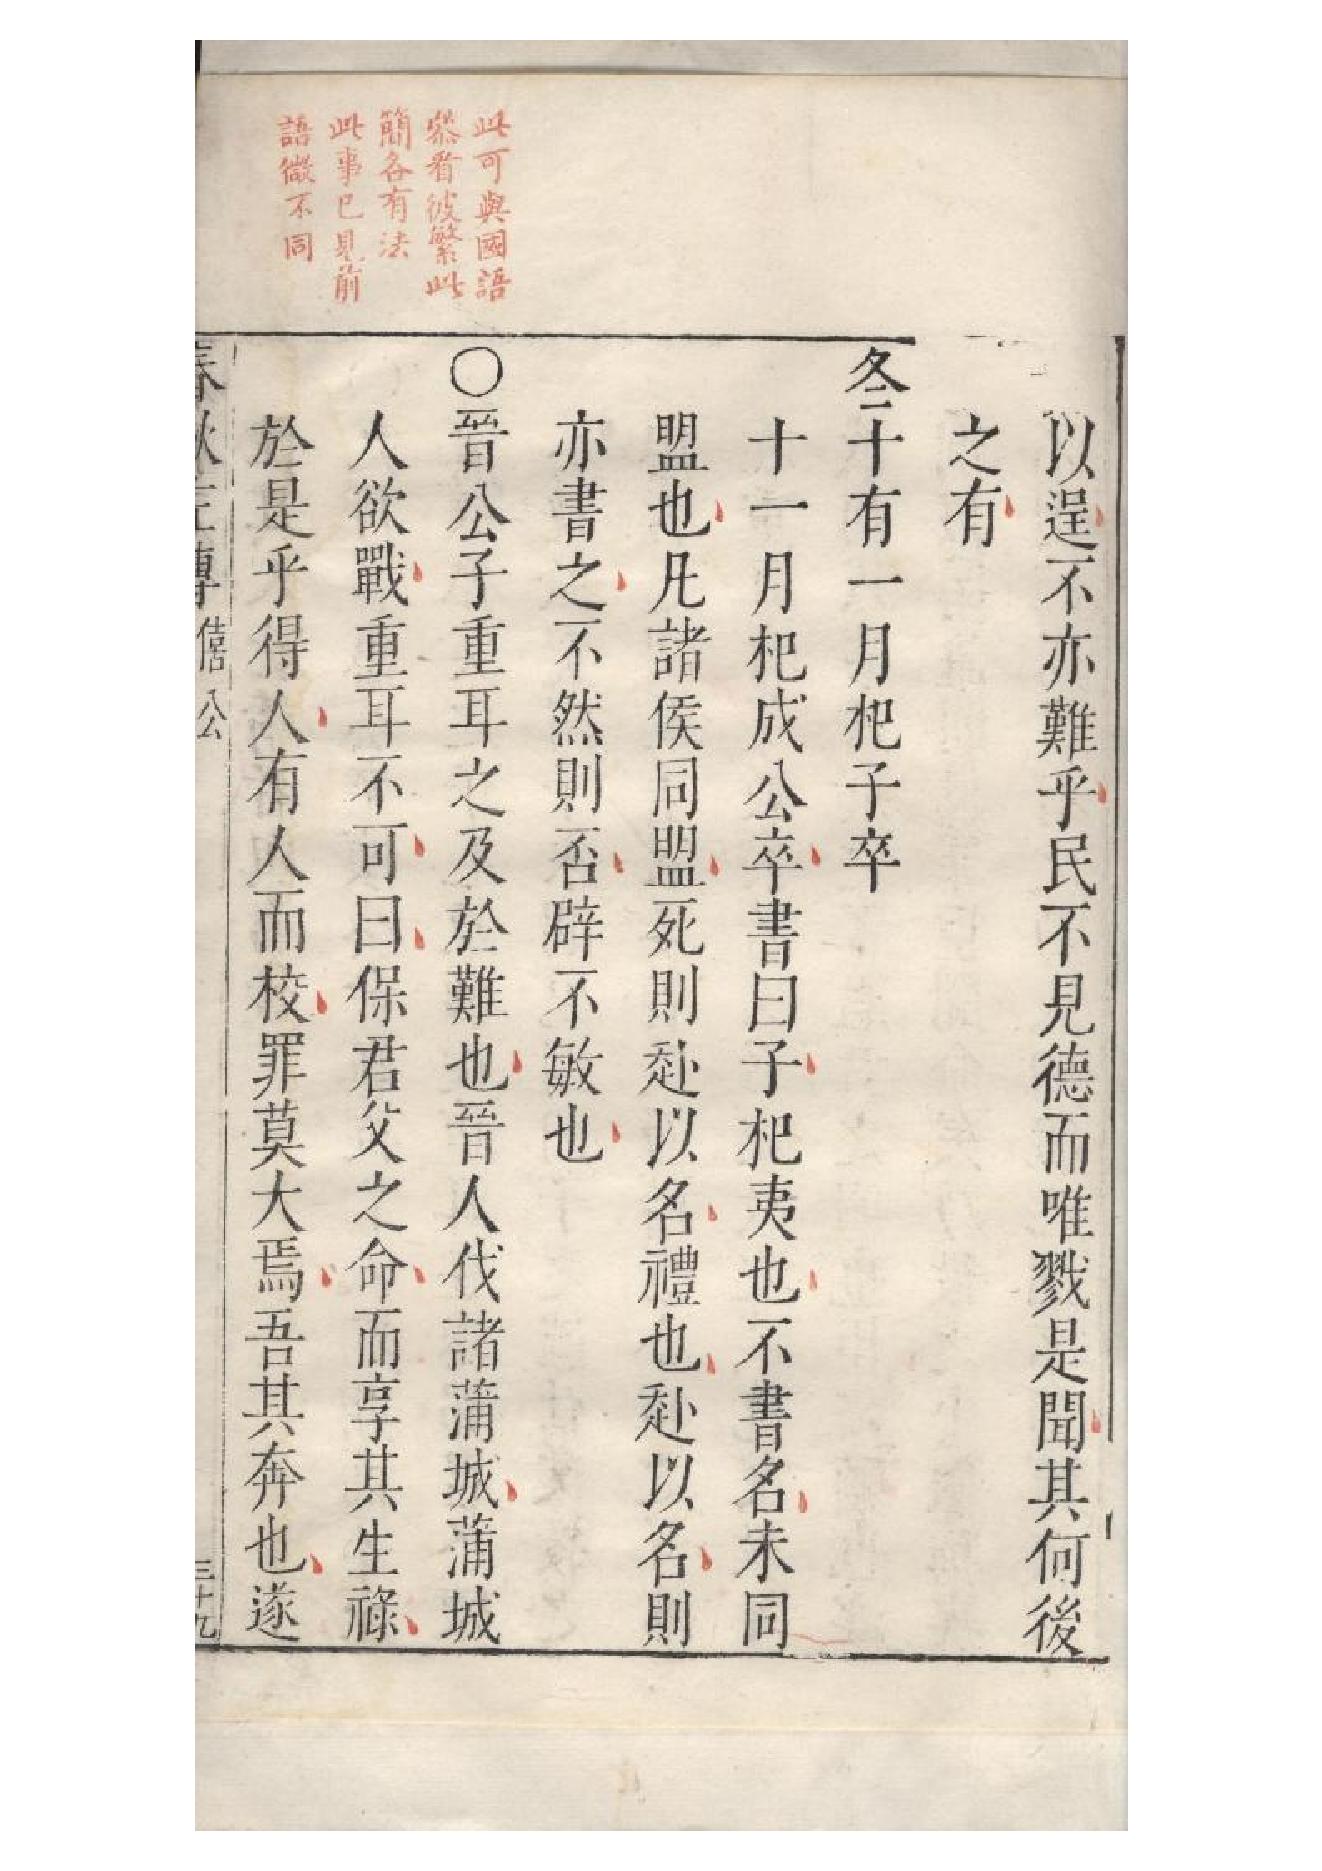 此可與國語
叅看彼繁此
簡各有法
此事已見前
語微不同
以逞不亦難乎民不見德而唯戮是聞其何後
之有
冬十有一月杞子卒
十一月杞成公卒書曰子杞夷也不書名未同
盟也凡諸侯同盟死則赴以名禮也赴以名則
亦書之不然則否辟不敏也
〇晉公子重耳之及於難也晉人伐諸蒲城蒲城
人欲戰重耳不可曰保君父之命而享其生祿
於是乎得人有人而校罪莫大焉吾其奔也遂
春秋左傳 僖公 三十九